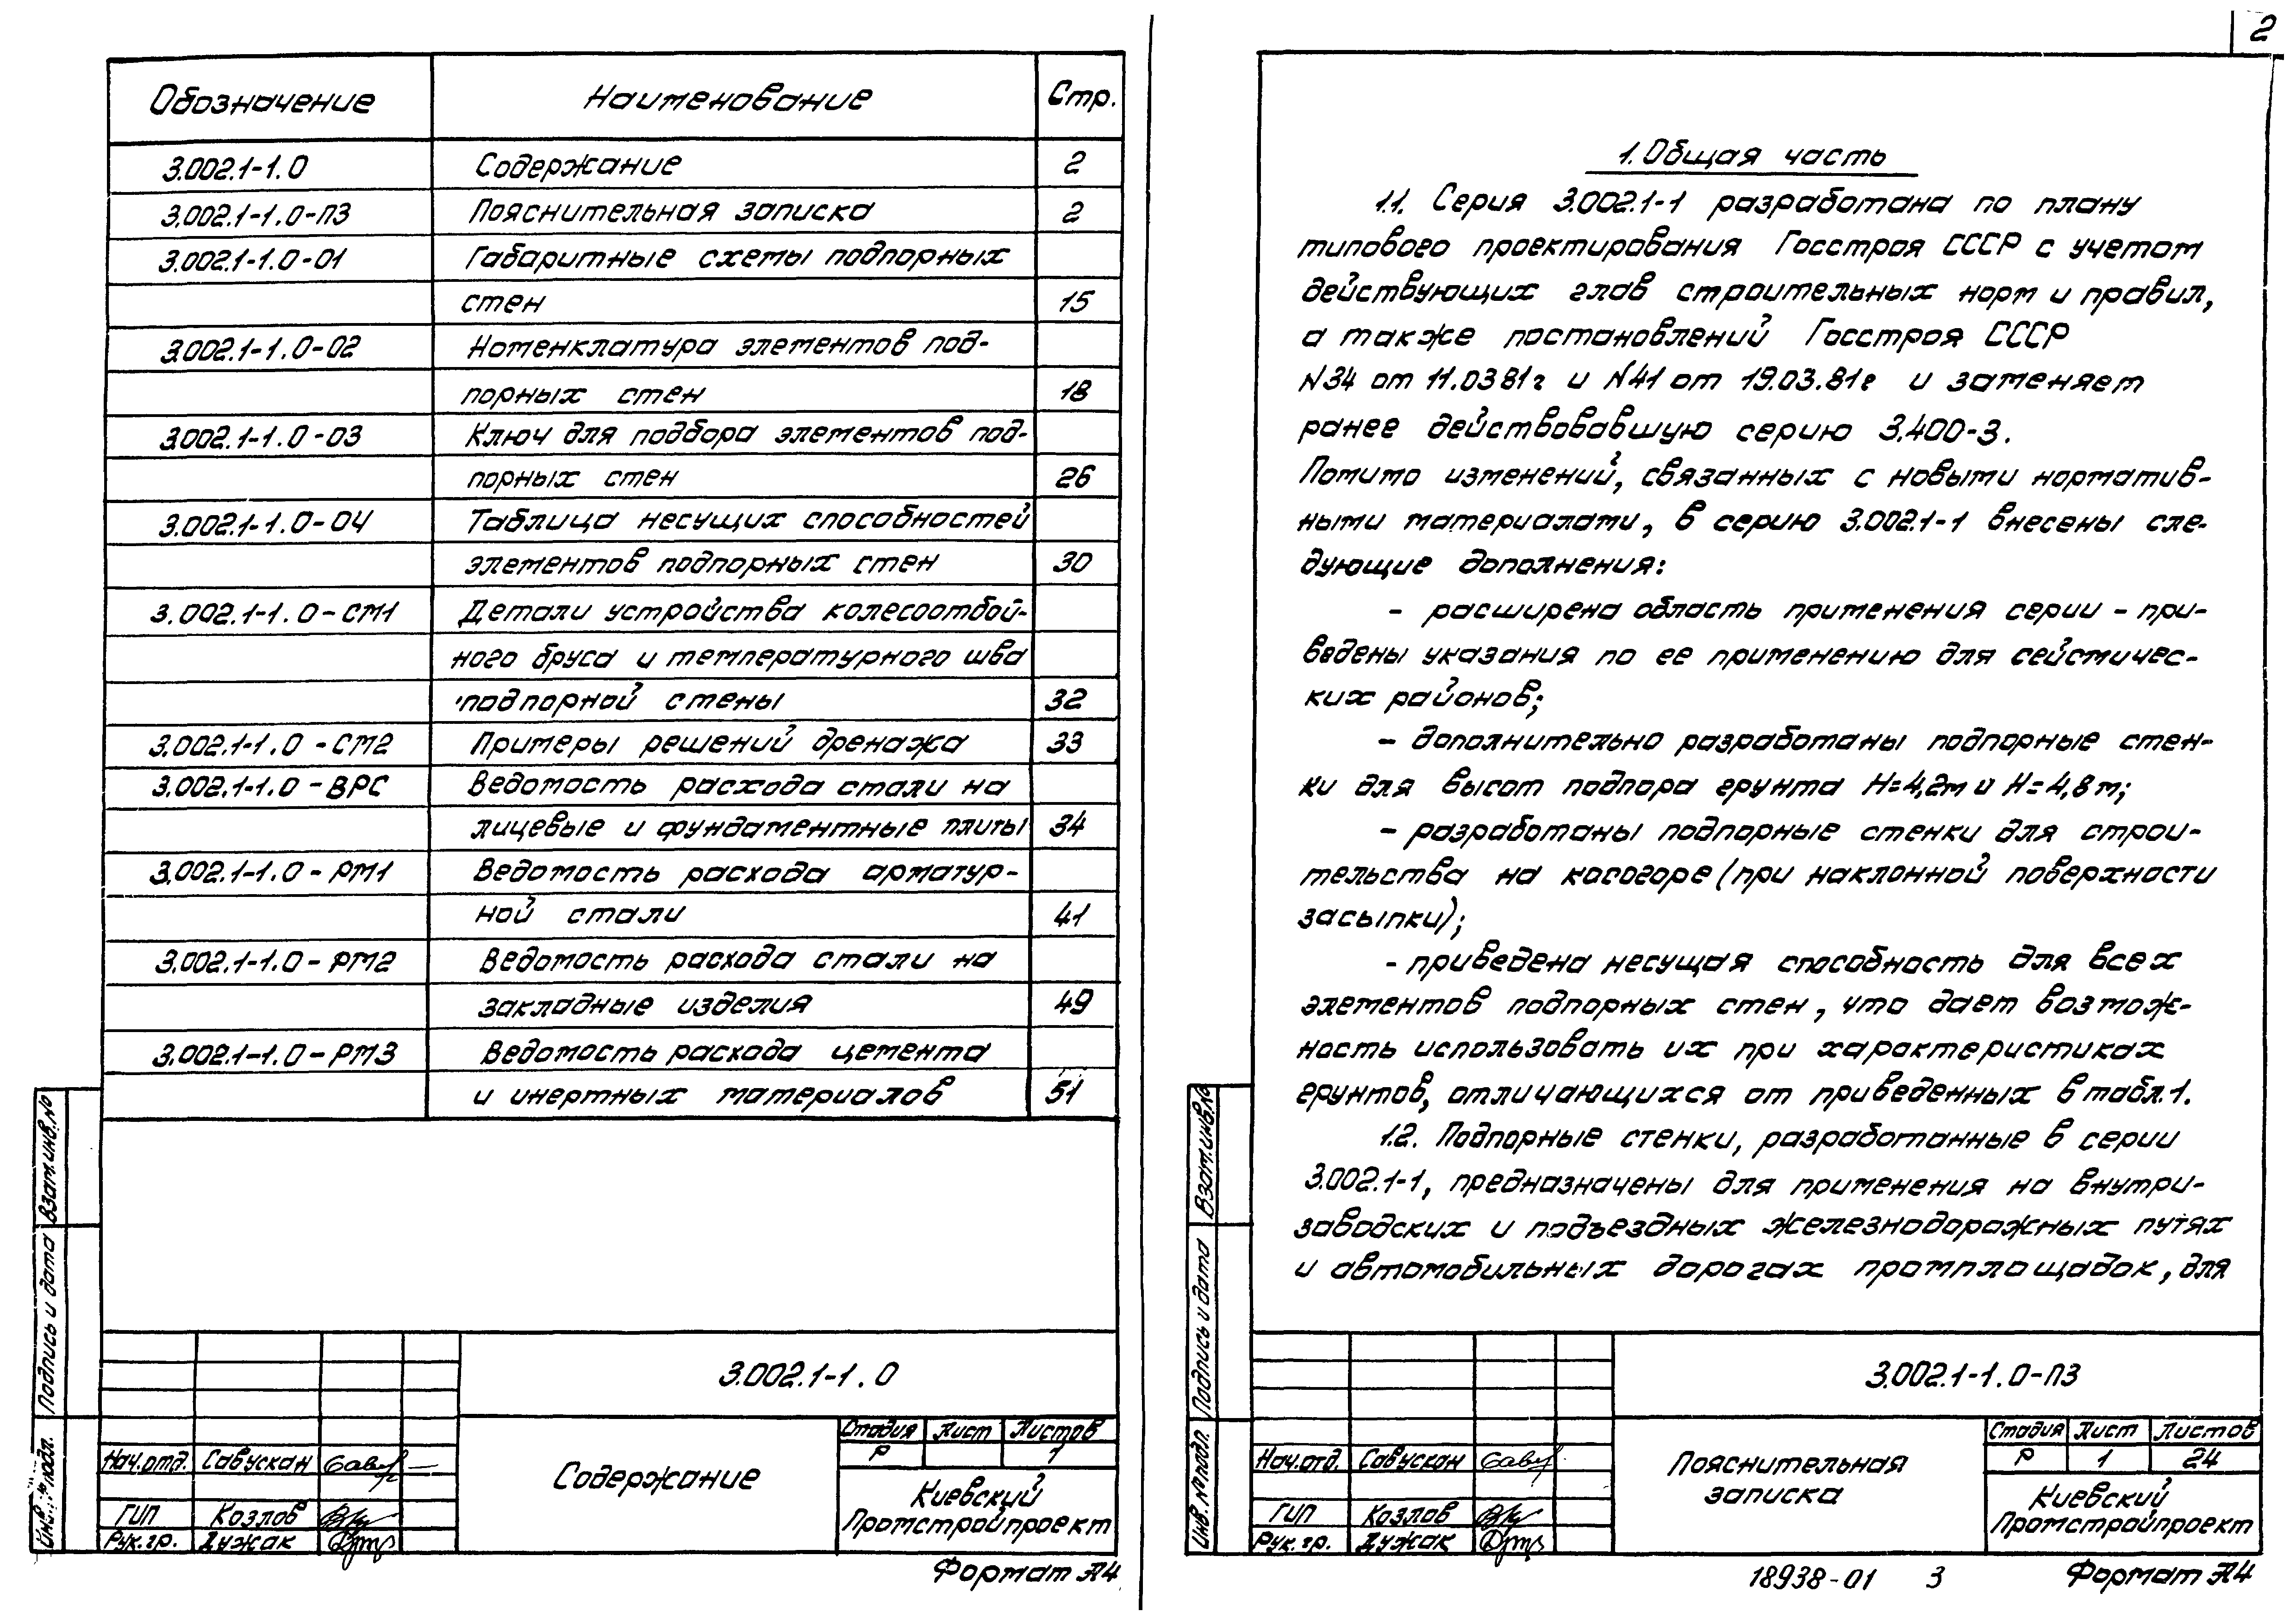 Обозначение Наименование Стр.
3.002.1-1.0 Содержание 2
3.002.1-1.0-ПЗ Пояснительная записка 2
3.002.1-1.0-01 Габаритные схемы подпорных
стен 15
3.002.1-1.0-02 Номенклатура элементов под-
порных стен 18
3.002.1-1.0-03 Ключ для подбора элементов под-
порных стен 26
3.002.1-1.0-04 Таблица несущих способностей
элементов подпорных стен 30
3.002.1-1.0-СМ1 Детали устройства колесоотбой-
ного бруса и температурного шва
подпорной стены 32
3.002.1-1.0-СМ2 Примеры решений дренажа 33
3.002.1-1.0-ВРС Ведомость расхода стали на
лицевые и фундаментные плиты 34
3.002.1-1.0-РМ1 Ведомость расхода арматур-
ной стали 41
3.002.1-1.0-РМ2 Ведомость расхода стали на
закладные изделия 49
3.002.1-1.0-РМ3 Ведомость расхода цемента
и инертных материалов 51
Взам.инв.№
Подпись и дата
Инв.№ подл.
3.002.1-1.0
Содержание
Стадия Лист Листов
Р 1
Киевский
Промстройпроект
Нач.отд. Савускан
ГИП Козлов
Рук.гр. Дужак
Формат А4
2
1. Общая часть
1.1. Серия 3.002.1-1 разработана по плану
типового проектирования Госстроя СССР с учетом
действующих глав строительных норм и правил,
а также постановлений Госстроя СССР
N34 от 11.03 81г и N41 от 19.03.81г и заменяет
ранее действовавшую серию 3.400-3.
Помимо изменений, связанных с новыми норматив-
ными материалами, в серию 3.002.1-1 внесены сле-
дующие дополнения:
- расширена область применения серии - при-
ведены указания по ее применению для сейсмичес-
ких районов;
- дополнительно разработаны подпорные стен-
ки для высот подпора грунта H=4,2м и H=4,8м;
- разработаны подпорные стенки для строи-
тельства на косогоре (при наклонной поверхности
засыпки);
- приведена несущая способность для всех
элементов подпорных стен, что дает возмож-
ность использовать их при характеристиках
грунтов, отличающихся от приведенных в табл.1.
1.2. Подпорные стенки, разработанные в серии
3.002.1-1, предназначены для применения на внутри-
заводских и подъездных железнодорожных путях
и автомобильных дорогах промплощадок, для
Взам.инв.№
Подпись и дата
Инв.№ подл.
3.002.1-1.0-ПЗ
Пояснительная
записка
Стадия Лист Листов
Р 1 24
Киевский
Промстройпроект
Нач.отд. Савускан
ГИП Козлов
Рук.гр. Дужак
18938-01 3 Формат А4